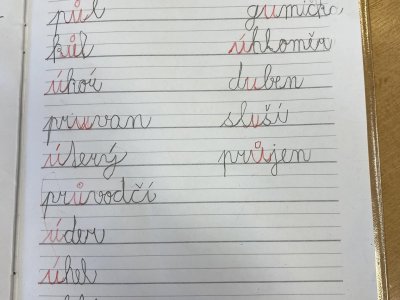 půl
kůl
pruvan
úterý
průvodčí
úder
úhel
gumička
úhloměr
duben
sluší
průjen